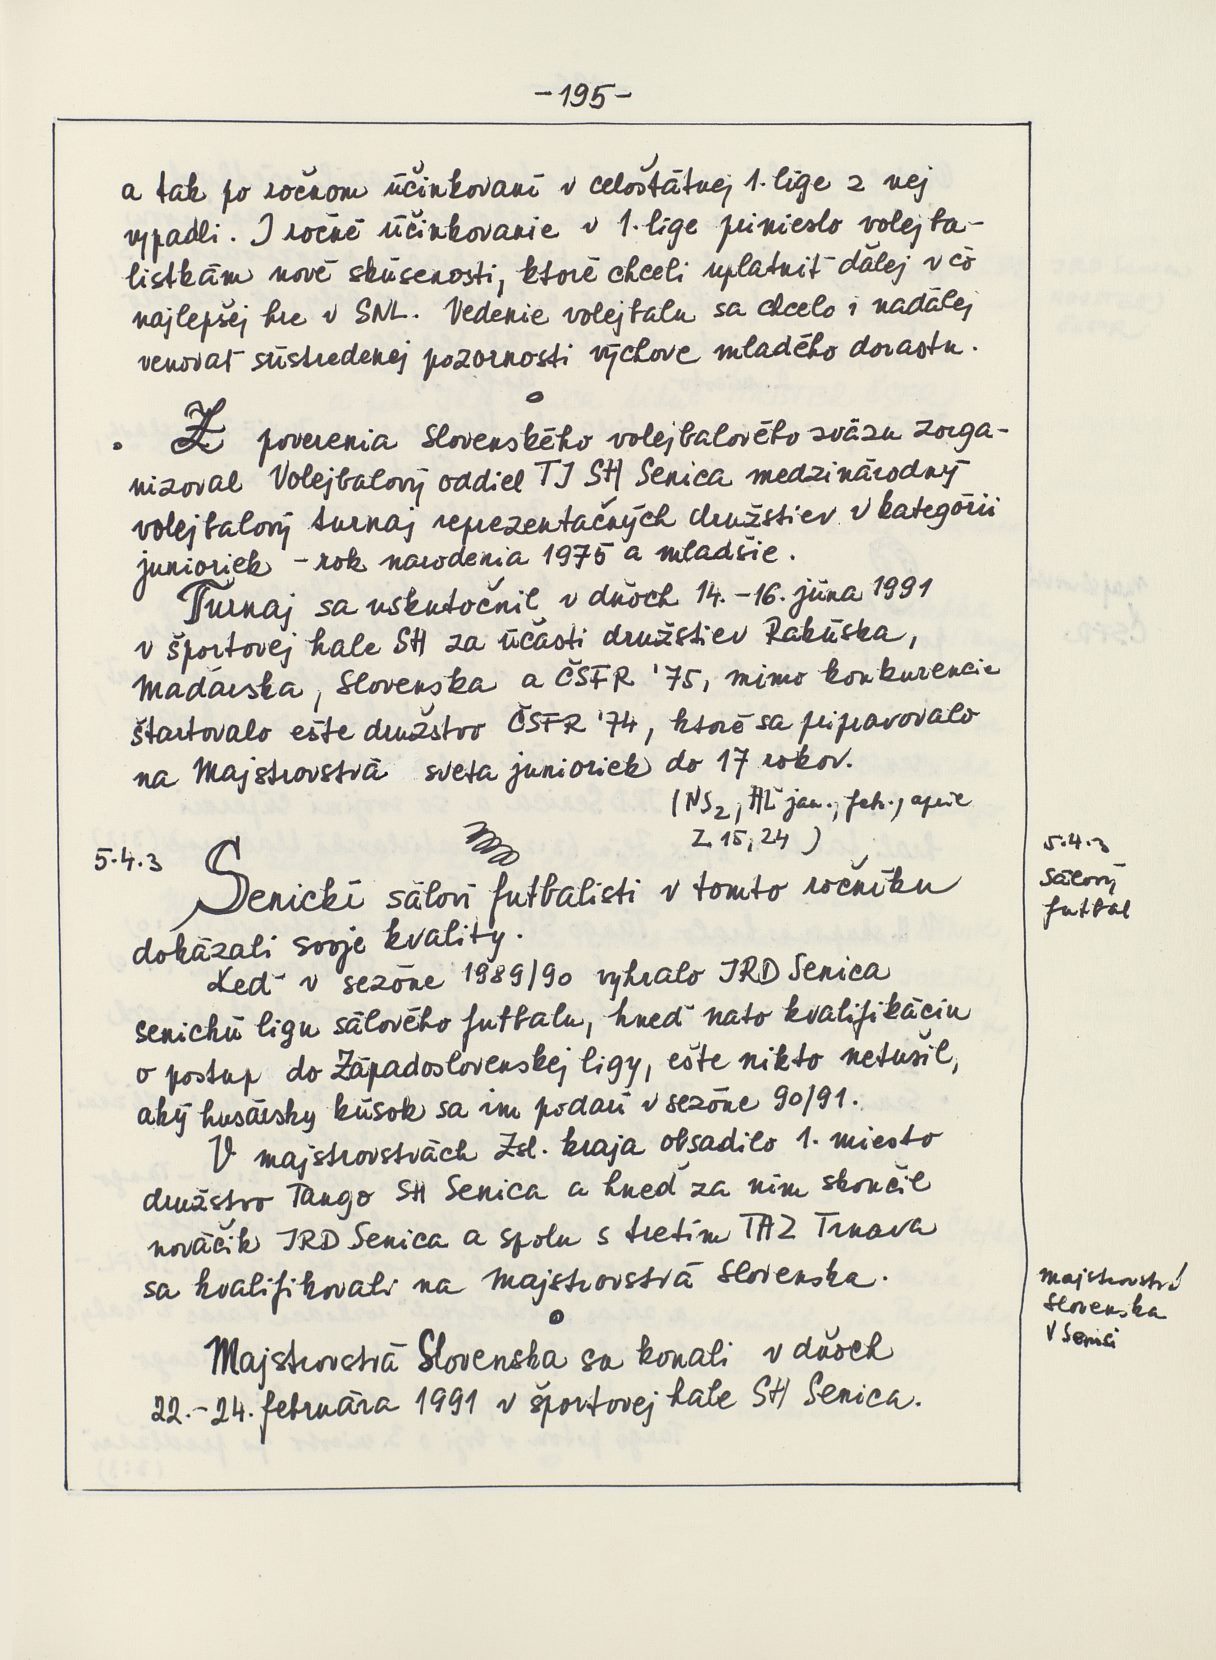 -195-
a tak po ročnom účinkovaní v celoštátnej 1. lige z nej
vypadli. I ročné účinkovanie v 1. lige prinieslo volejba-
listkám nové skúsenosti, ktoré chceli uplatniť ďalej v čo
najlepšej hre v SNL. Vedenie volejbalu sa chcelo i naďalej
venovať sústredenej pozornosti výchove mladého dorastu.
Z poverenia Slovenského volejbalového zväzu zorga-
nizoval Volejbalový oddiel TJ SH Senica medzinárodný
volejbalový turnaj reprezentačných družstiev v kategórii
junioriek - rok narodenia 1975 a mladšie.
Turnaj sa uskutočnil v dňoch 14.-16. júna 1991
v športovej hale SH za účasti družstiev Rakúska,
Maďarska, Slovenska a ČSFR '75, mimo konkurencie
štartovalo ešte družstvo ČSFR '74, ktoré sa pripravovalo
na Majstrovstvá sveta junioriek do 17 rokov.
(NS2, HĽ jan., feb., apríl
Z 15, 24)
5.4.3 Senickí sáloví futbalisti v tomto ročníku
dokázali svoje kvality.
Keď v sezóne 1989/90 vyhralo JRD Senica
senickú ligu sálového futbalu, hneď nato kvalifikáciu
o postup do Západoslovenskej ligy, ešte nikto netušil,
aký husársky kúsok sa im podarí v sezóne 90/91.
V majstrovstvách Zsl. kraja obsadilo 1. miesto
družstvo Tango SH Senica a hneď za ním skončil
nováčik JRD Senica a spolu s tretím TAZ Trnava
sa kvalifikovali na Majstrovstvá Slovenska.
Majstrovstvá Slovenska sa konali v dňoch
22.-24. februára 1991 v športovej hale SH Senica.
5.4.3
Sálový
futbal
Majstrovstvá
Slovenska
v Senici